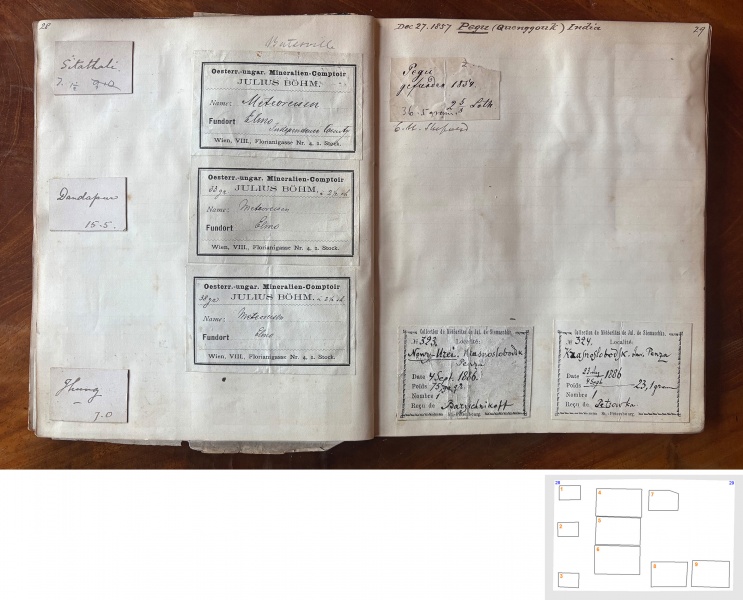 28
Sitathali.
Dandapur
15-5.
7.0
Oesterr.-ungar. Mineralien-Comptoir
JULIUS BÖHM.
Name: Meteoreisen
Fundort Elmo
Independence County
Wien, VIII., Florianigasse Nr. 4, 2. Stock.
Oesterr.-ungar. Mineralien-Comptoir
38 gr JULIUS BÖHM.
Name: Meteoreisen
Fundort Elmo
Wien, VIII., Florianigasse Nr. 4, 2. Stock.
Oesterr.-ungar. Mineralien-Comptoir
38 gr JULIUS BÖHM.
Name: Meteoreisen
Fundort Elmo
Wien, VIII., Florianigasse Nr. 4, 2. Stock.
Dec 27. 1857 Pegu (Quenggouk) India
29
Pegu
gefunden
36.5 gramm 2 Loth
C. U. Shepard
Collection de Météorites de Jul. de Siemaschko.
№ 393. Localité:
Nowy-Urei. Krasnoslobodsk
Penza
Date 4 Sept. 1886.
Poids
Nombre 1
Reçu de Barychnikoff
St.-Pétersbourg.
Collection de Météorites de Jul. de Siemaschko.
№ 324. Localité:
Krasnoslobodsk. Penza
Date 4 Sept 1886
Poids 23,1 gram
Nombre 1
Reçu de Petrowka
St.-Pétersbourg.
28
29
1
2
3
4
5
6
7
8
9